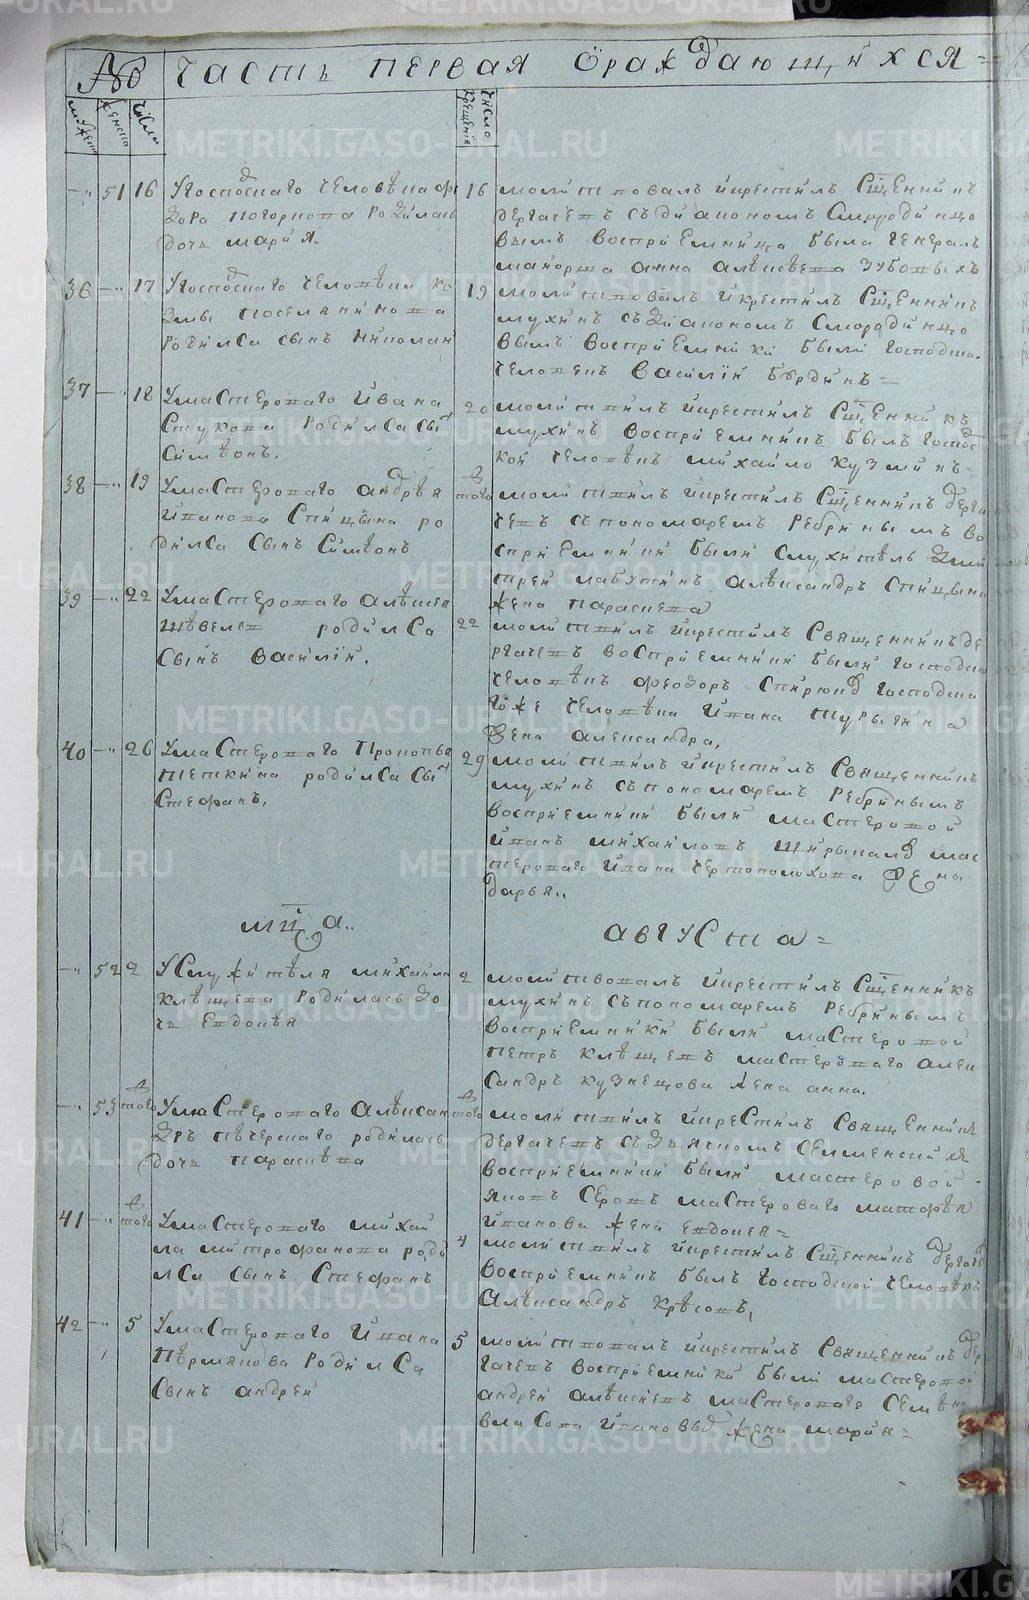 № Часть первая ораждающихся =
мужеска
женска
число
число крещенія
51 16 У господскаго человѣка Фе
дора
родилась
дочь Марія.
16 молитвовалъ и крестилъ Сщенникъ
Дергачевъ съ дїакономъ Смородинцо
вымъ воспріемница была генералъ
маіорша Анна Алѣксѣева Зубовыхъ
36 17 У господскаго человѣка Ко
змы Поселянинова
родился сынъ Николай
19 молитвовалъ и крестилъ Сщенникъ
Мухинъ съ діакономъ Смородинцо
вымъ воспріемники были господск.
человекъ Василій Бѣрдинъ =
37 18 У мастероваго Ивана
Стукова родился сы
Симѣонъ.
20 молитвилъ и крестилъ Сщенникъ
Мухинъ воспріемникъ былъ господс
кой человѣкъ Михайло Кузминъ =
38 19 У мастероваго Андрѣя
Иванова Спицына ро
дился сынъ Симѣонъ
того молитвилъ и крестилъ Сщенникъ Дерга
чевъ съ пономаремъ Ребринымъ во
спріемники были служитѣль Дми
трей Лабутинъ Алѣксандръ Спицына
жена Парасковья
39 22 У мастероваго Алѣксея
Шѣвелев родился
сынъ Василіи.
22 молитвилъ и крестилъ Священникъ Де
ргачевъ воспріемники были господск
человѣкъ Феодоръ господска
гоже человѣка Ивана Турыгина
жена Александра,
40 26 У мастероваго Прокопья
Теткина родился сы
Стефанъ,
29 молитвилъ и крестилъ Священникъ
Мухинъ съ пономаремъ Ребринымъ
воспріемники были мастеровой
Иванъ Михаиловъ Ширыкалов мас
тероваго Ивана Чертополохова жена
Дарья..
мца.. Августа =
52 2 У служитѣля Михаила
Клѣщева родилась до
чь Евдокѣя
2 молитвовалъ и крестилъ Сщенникъ
Мухинъ съ пономаремъ Ребринымъ
воспріемники были мастеровой
Петръ Клѣщевъ мастероваго Алек
сандръ Кузнецова жена Анна.
53 того У мастероваго Алѣксан
дръ Пѣчерскаго родилась
дочь Парасковѣа
того молитвилъ и крестилъ Священникъ
Дергачевъ съ дьячкомъ Селменски
воспріемники были мастеровой
Яковъ Серовъ мастероваго Матфѣя
Иванова жена Евдокея =
41 того У мастероваго Михай
ла Митрофанова роди
лся сынъ Стефанъ
4 молитвилъ и крестилъ Сщенникъ Дергаче
воспріемникъ былъ господской человѣкъ
Алѣксандръ Крѣковъ,
42 5 У мастероваго Ивана
Пѣрмякова родился
сынъ Андрей
5 молитвовалъ и крестилъ Священникъ Дер
гачевъ воспріемники были мастеровой
Андрей Алѣксѣевъ мастероваго Семѣна
Власова Ивановы жена Марія =
METRIKI.GASO-URAL.RU